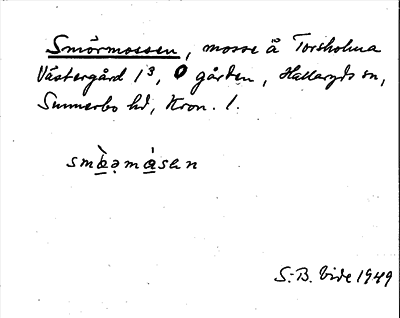 Smörmossen, mosse å Torsholma
Västergård 1³, O gården, Hallaryds sn,
Sunnerbo hd, Kron. l.
smæ̀əmásen
S.-B. Vide 1949